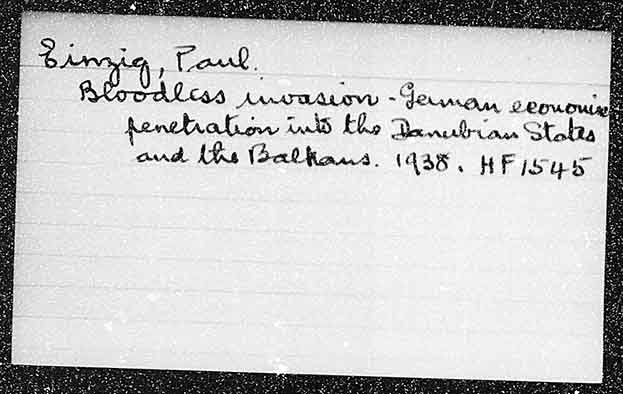 Einzig, Paul.
Bloodless invasion - German economic
penetration into the Danubian States
and the Balkans. 1938. HF1545